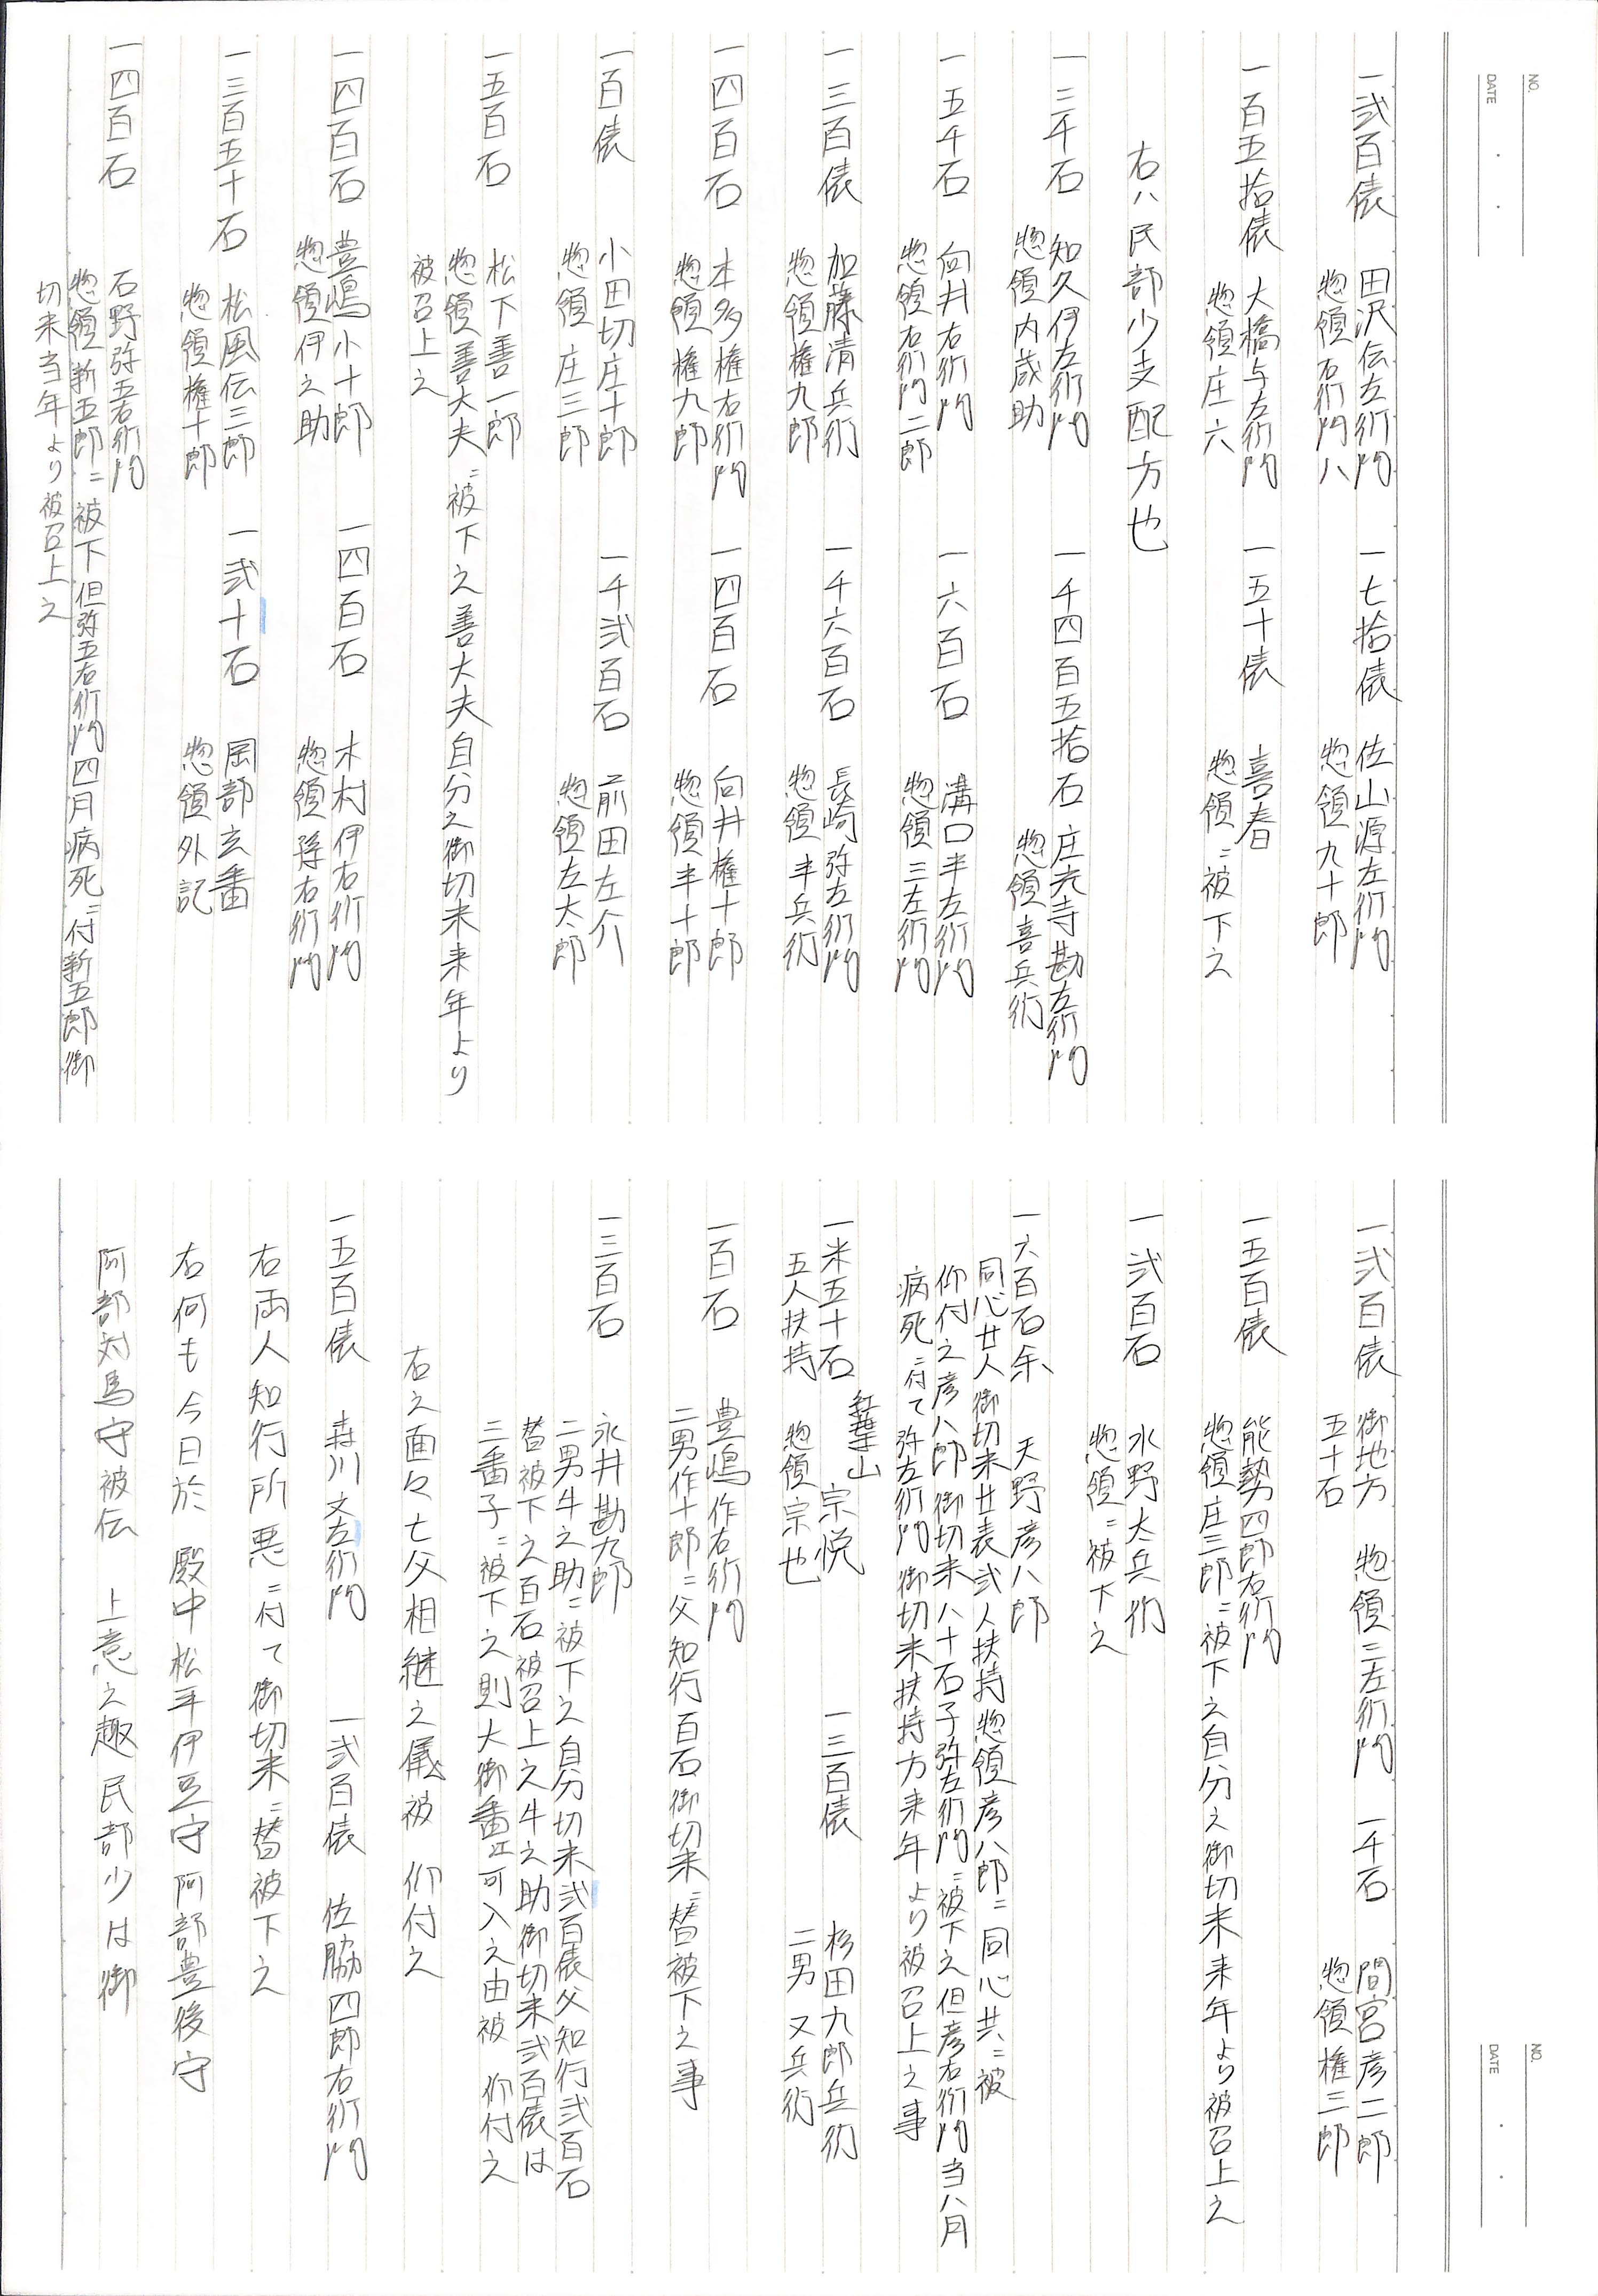 NO.
DATE
一弐百俵
田沢伝左衛門
惣領右衛門八
一七拾俵
佐山源左衛門
惣領九十郎
一百五拾俵
大橋与左衛門
惣領庄六
一五十俵
喜春
惣領ニ被下之
右ハ民部少支配方也
一三千石
知久伊左衛門
惣領内蔵助
一千四百五拾石
庄充寺勘左衛門
惣領喜兵衛
一五千石
向井右衛門
惣領右衛門二郎
一六百石
溝口半左衛門
惣領三左衛門
一三百俵
加藤清兵衛
惣領権九郎
一千六百石
長崎弥左衛門
惣領半兵衛
一四百石
本多権右衛門
惣領権九郎
一四百石
向井権十郎
惣領半十郎
一百俵
小田切庄十郎
惣領庄三郎
一千弐百石
前田左介
惣領左太郎
一五百石
松下善一郎
惣領善大夫ニ被下之善大夫自分之御切米来年より
被召上之
一四百石
豊嶋小十郎
惣領伊之助
一四百石
木村伊右衛門
惣領孫右衛門
一三百五十石
松風伝三郎
惣領権十郎
一弐十石
岡部玄番
惣領外記
一四百石
石野弥五右衛門
惣領新五郎ニ被下但弥五右衛門四月病死ニ付新五郎御
切米当年より被召上之
NO.
DATE
一弐百俵
御地方
五十石
惣領三左衛門
一千石
間宮彦二郎
惣領権三郎
一五百俵
能勢四郎右衛門
惣領庄三郎ニ被下之自分之御切米来年より被召上之
一弐百石
水野太兵衛
惣領ニ被下之
一六百石余
天野彦八郎
同心廿人御切米廿表弐人扶持惣領彦八郎ニ同心共ニ被
仰付之彦八郎御切米八十石子弥左衛門ニ被下之但彦右衛門当八月
病死ニ付て弥左衛門御切米扶持方来年より被召上之事
一米五十石
五人扶持
紅葉山
宗悦
惣領宗也
一三百俵
杉田九郎兵衛
二男又兵衛
一百石
豊嶋作右衛門
二男作十郎ニ父知行百石御切米ニ替被下之事
一三百石
永井勘九郎
二男牛之助ニ被下之自分切米弐百俵父知行弐百石
替被下之百石被召上之牛之助御切米弐百俵は
三番子ニ被下之則大御番江可入之由被 仰付之
右之面々七父相継之儀被 仰付之
一五百俵
森川文左衛門
一弐百俵
佐脇四郎右衛門
右両人知行所悪ニ付て御切米ニ替被下之
右何も今日於 殿中松平伊豆守阿部豊後守
阿部対馬守被伝 上意之趣民部少は御